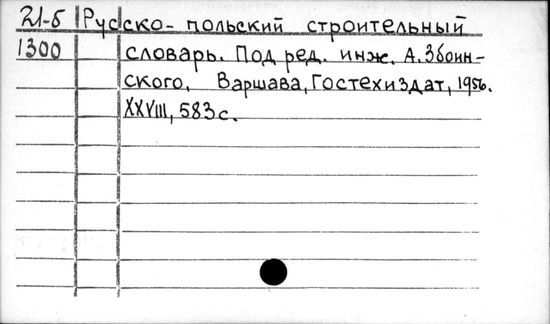 21-б Русско-польский строительный
1300 словарь. Под ред. инж. А. Збоин-
ского. Варшава, Гостехиздат, 1956.
XXVIII, 583 с.